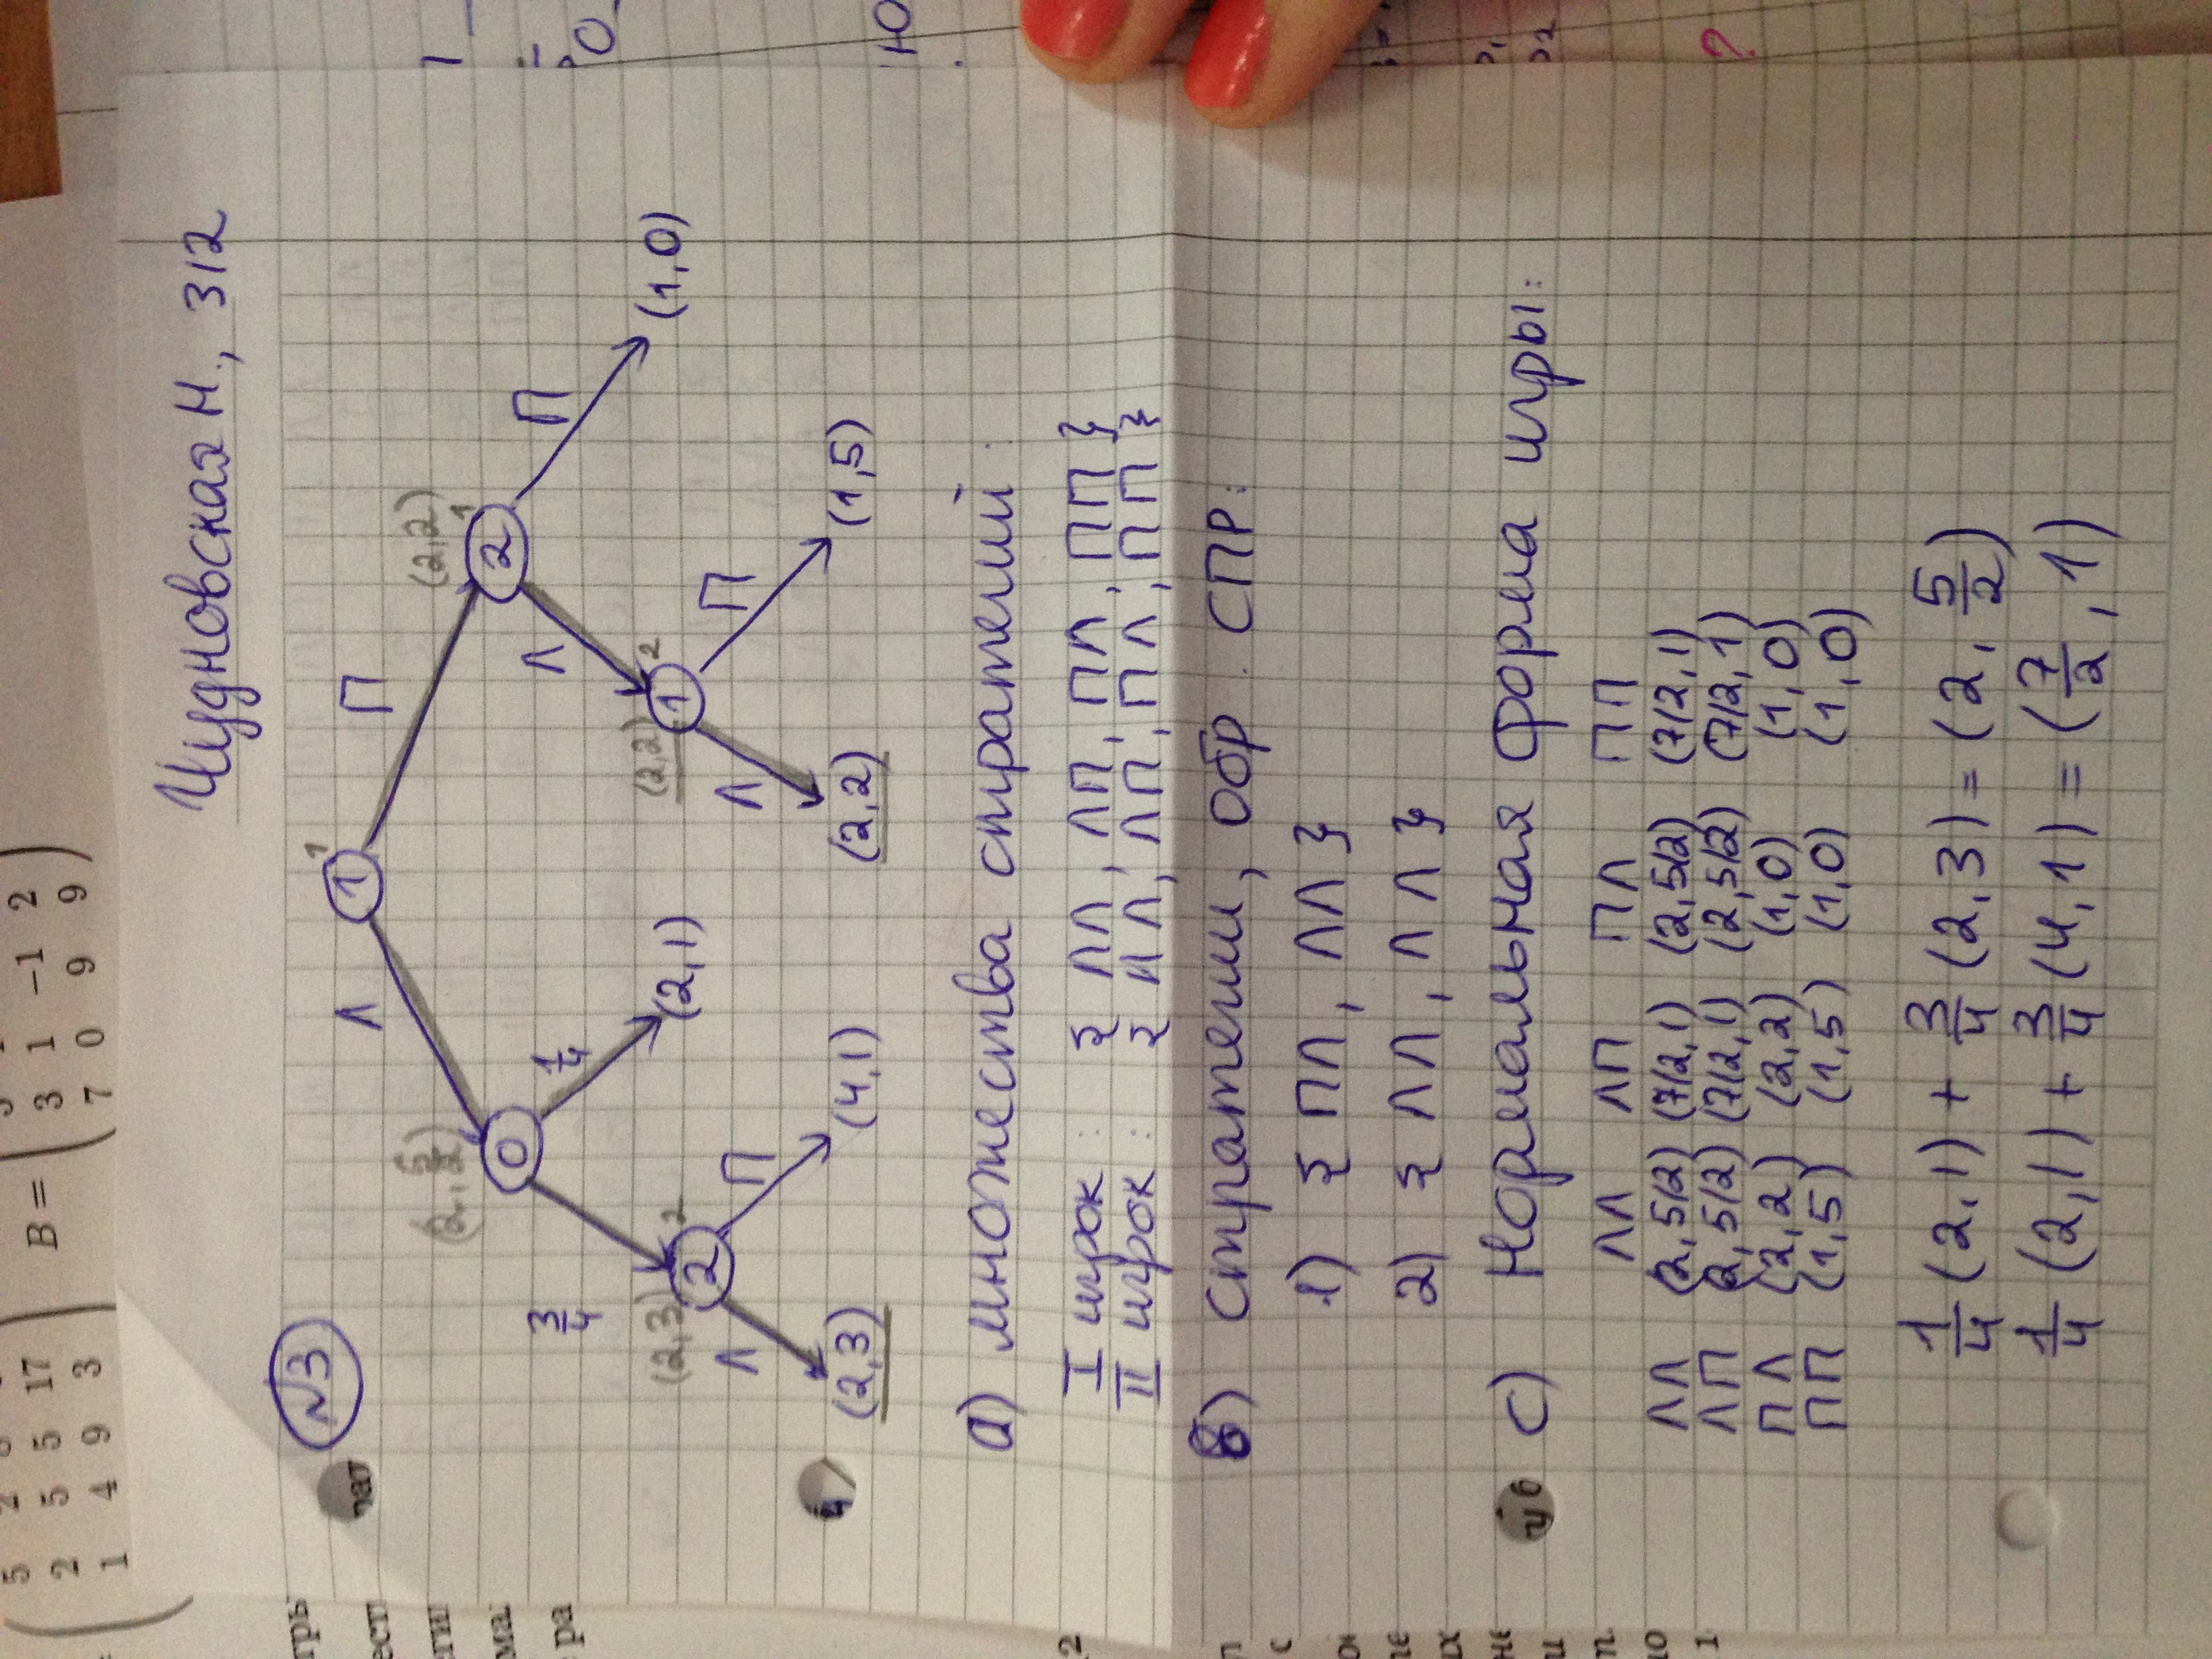 Чудновская Н., 312
№3
1 1
Л П
(2, 5/2) (2,2)
0 2 1
3/4 1/4 Л П
(2,3) (2,1) (2,2) (1,0)
2 2 1 2
Л П Л П
(2,3) (4,1) (2,2) (1,5)
а) множества стратегий:
I игрок : { ЛЛ, ЛП, ПЛ, ПП }
II игрок : { ЛЛ, ЛП, ПЛ, ПП }
в) стратегии, обр. СПР:
1) { ПЛ, ЛЛ }
2) { ЛЛ, ЛЛ }
с) Нормальная форма игры:
ЛЛ ЛП ПЛ ПП
ЛЛ (2, 5/2) (7/2, 1) (2, 5/2) (7/2, 1)
ЛП (2, 5/2) (7/2, 1) (2, 5/2) (7/2, 1)
ПЛ (2, 2) (2, 2) (1, 0) (1, 0)
ПП (1, 5) (1, 5) (1, 0) (1, 0)
1/4 (2, 1) + 3/4 (2, 3) = (2, 5/2)
1/4 (2, 1) + 3/4 (4, 1) = (7/2, 1)
B =
5 17
2 5 5
1 4 9 3
3 1 -1 2
7 0 9 9